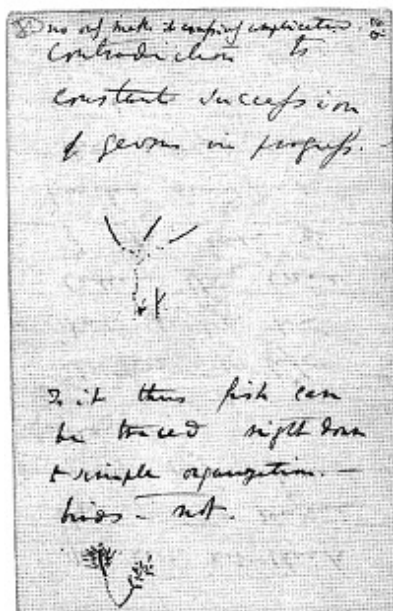 no only makes it excessively complicated.
contradiction to
constant succession
of germs in progress.—
Is it thus fish can
be traced right down
to simple organization.—
birds — not.